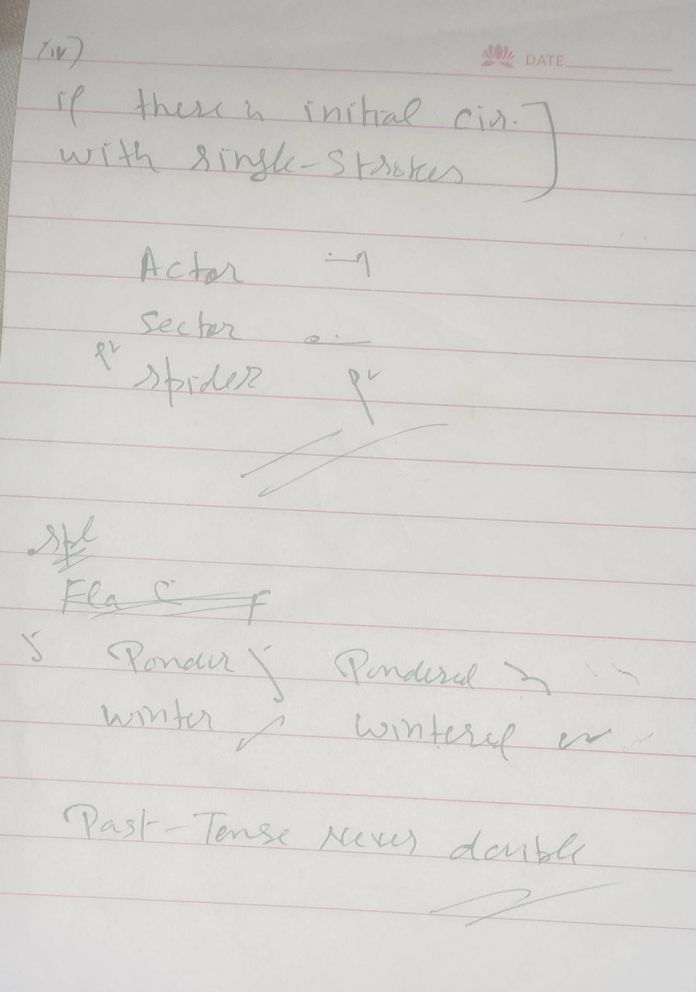 (iv)
DATE
if there is initial cir.
with single-strokes
Actor
Sector
Spider
Spl
Ponder Pondered
Winter Wintered
Past-Tense Never double